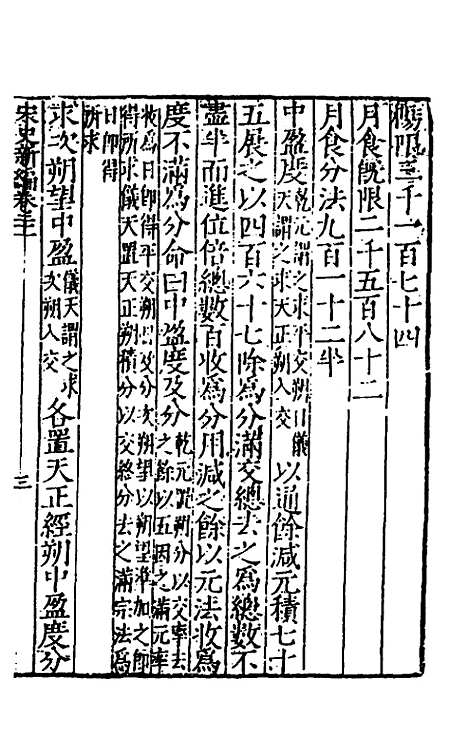 陽限三千一百七十四
月食既限二千五百八十二
月食分法九百一十二半
中盈度乾元謂之求平交朔日儀天謂之求天正朔入交以通餘減元積七十
五展之以四百六十七除為分滿交總去之為總數不
盡半而進位倍總數百收為分用減之餘以元法收為
度不滿為分命曰中盈度及分乾元置朔分以交率去之餘以五因之滿元率
收為日即得平交朔日及分次朔望以朔望準加之即
得所求儀天置天正朔積分以交終分去之滿宗法為
日即得
所求
求次朔望中盈儀天謂之求次朔入交各置天正經朔中盈度分
宋史新編卷三十
三